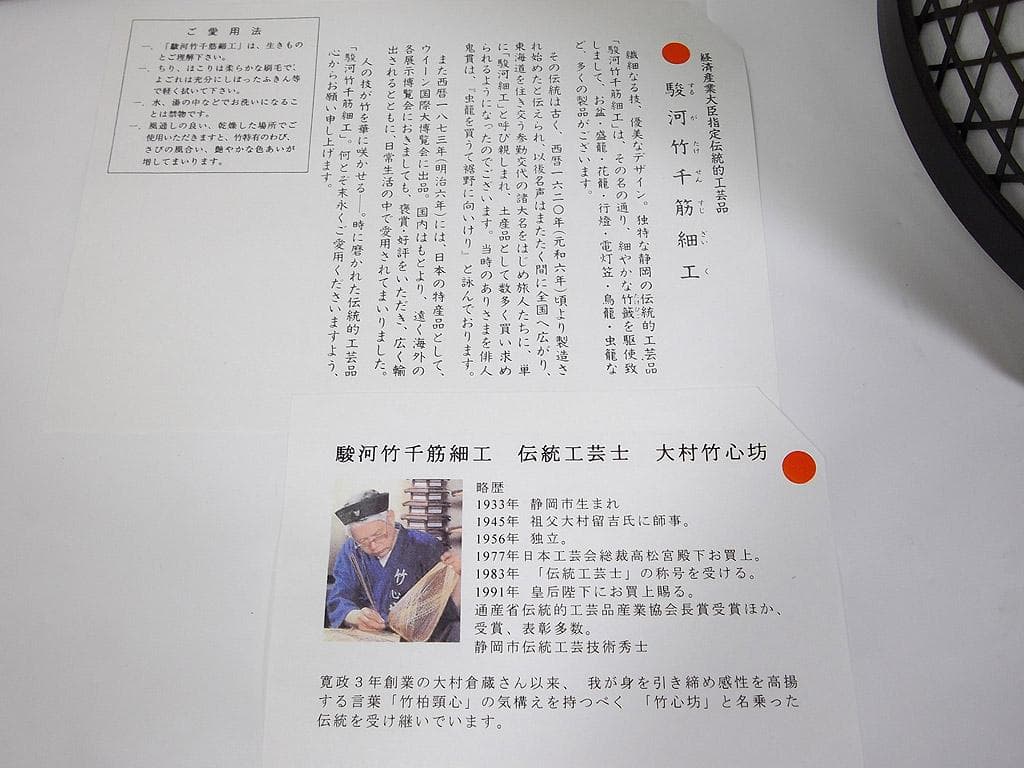 経済産業大臣指定伝統的工芸品
駿河竹千筋細工
するがたけせんすじざいく
繊細なる技、優美なデザイン。独特な静岡の伝統的工芸品
「駿河竹千筋細工」は、その名の通り、細やかな竹籤を駆使致
たけひご
しまして、お盆・盛籠・花籠・行燈・電灯笠・鳥籠・虫籠な
ど、多くの製品がございます。
その伝統は古く、西暦一六二〇年(元和六年)頃より製造さ
れ始めたと伝えられ、以後名声はまたたく間に全国へ広がり、
東海道を往き交う参勤交代の諸大名をはじめ旅人たちに、単
に「駿河細工」と呼び親しまれ、土産品として数多く買い求め
られるようになったのでございます。当時のありさまを俳人
鬼貫は、『虫籠を買うて裾野に向いけり』と詠んでおります。
また西暦一八七三年(明治六年)には、日本の特産品として、
ウイーン国際大博覧会に出品。国内はもとより、遠く海外の
各展示博覧会におきましても、褒賞・好評をいただき、広く輸
出されるとともに、日常生活の中で愛用されてまいりました。
人の技が竹を華に咲かせる―。時に磨かれた伝統的工芸品
「駿河竹千筋細工」。何とぞ末永くご愛用くださいますよう、
心からお願い申し上げます。
ご愛用法
一、「駿河竹千筋細工」は、生きもの
とご理解下さい。
一、ちり、ほこりは柔らかな刷毛で、
よごれは充分にしぼったふきん等
で軽く拭いて下さい。
一、水、湯の中などでお洗いになるこ
とは禁物です。
一、風通しの良い、乾燥した場所でご
使用いただきますと、竹特有のわび、
さびの風合い、艶やかな色あいが
増してまいります。
駿河竹千筋細工 伝統工芸士 大村竹心坊
略歴
1933年 静岡市生まれ
1945年 祖父大村留吉氏に師事。
1956年 独立。
1977年日本工芸会総裁高松宮殿下お買上。
1983年 「伝統工芸士」の称号を受ける。
1991年 皇后陛下にお買上賜る。
通産省伝統的工芸品産業協会長賞受賞ほか、
受賞、表彰多数。
静岡市伝統工芸技術秀士
竹心
寛政3年創業の大村倉蔵さん以来、 我が身を引き締め感性を高揚
する言葉「竹柏頸心」の気構えを持つべく 「竹心坊」と名乗った
伝統を受け継いでいます。